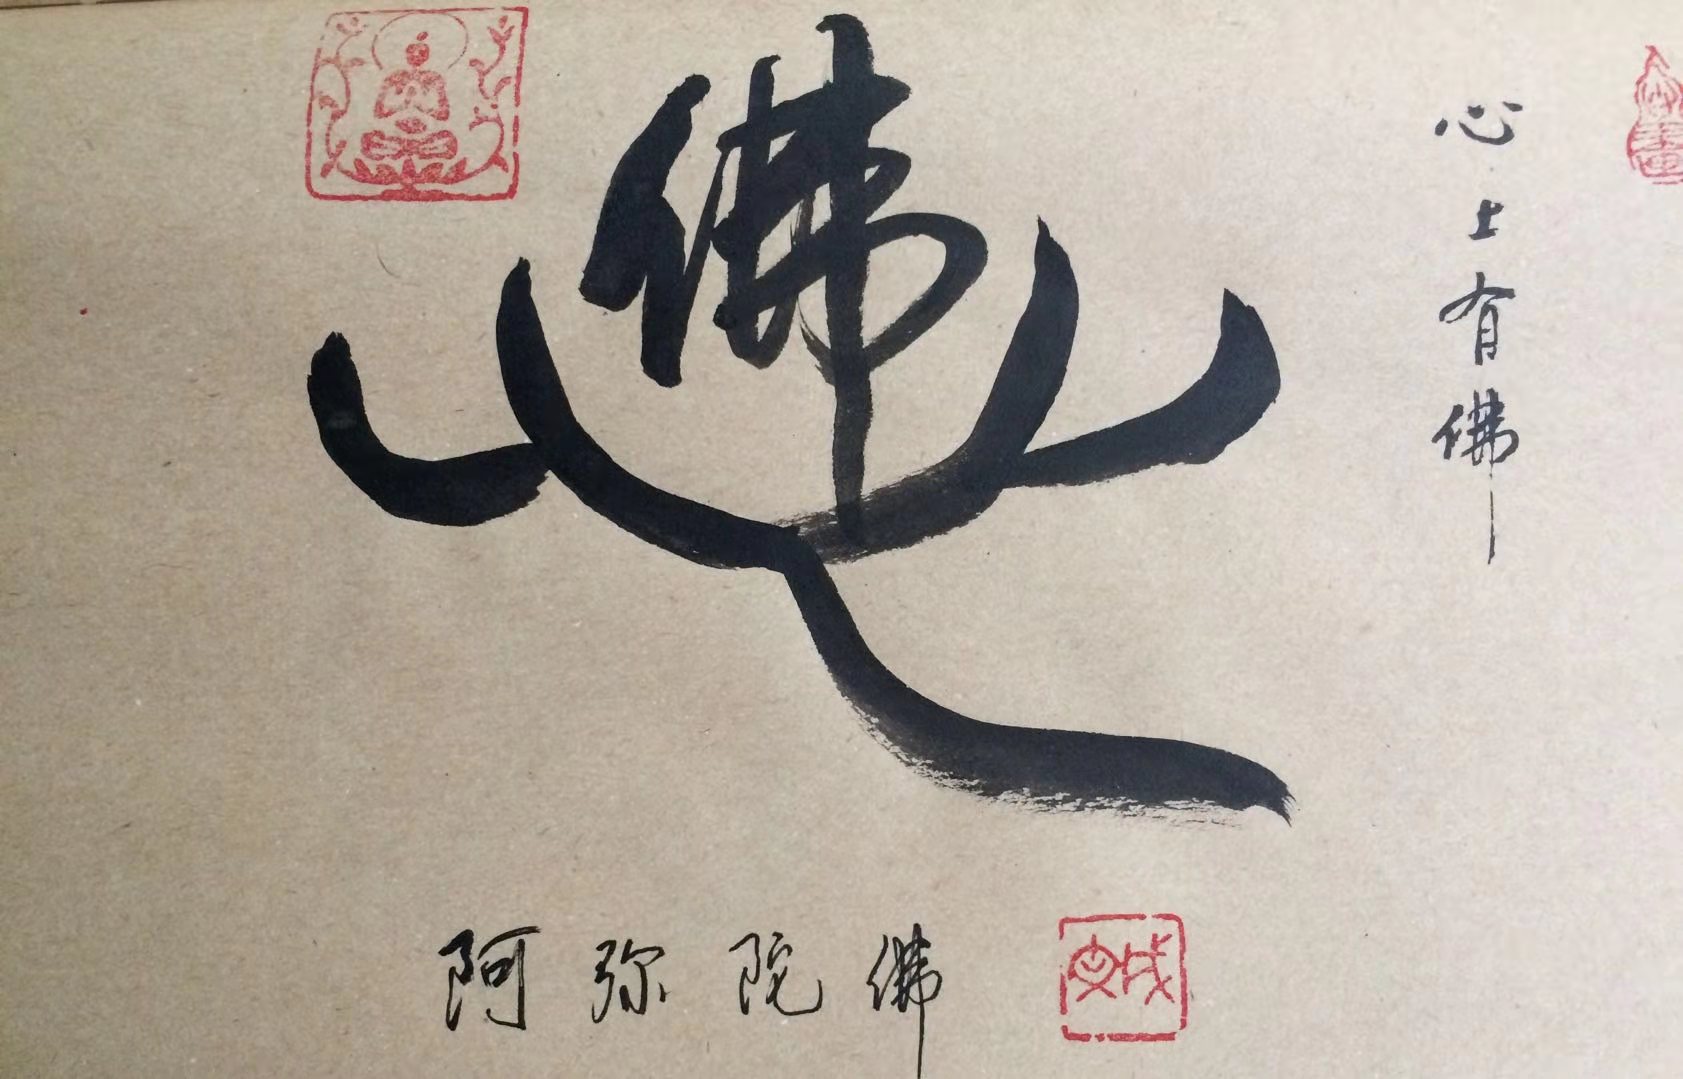 佛
心上有佛
阿弥陀佛